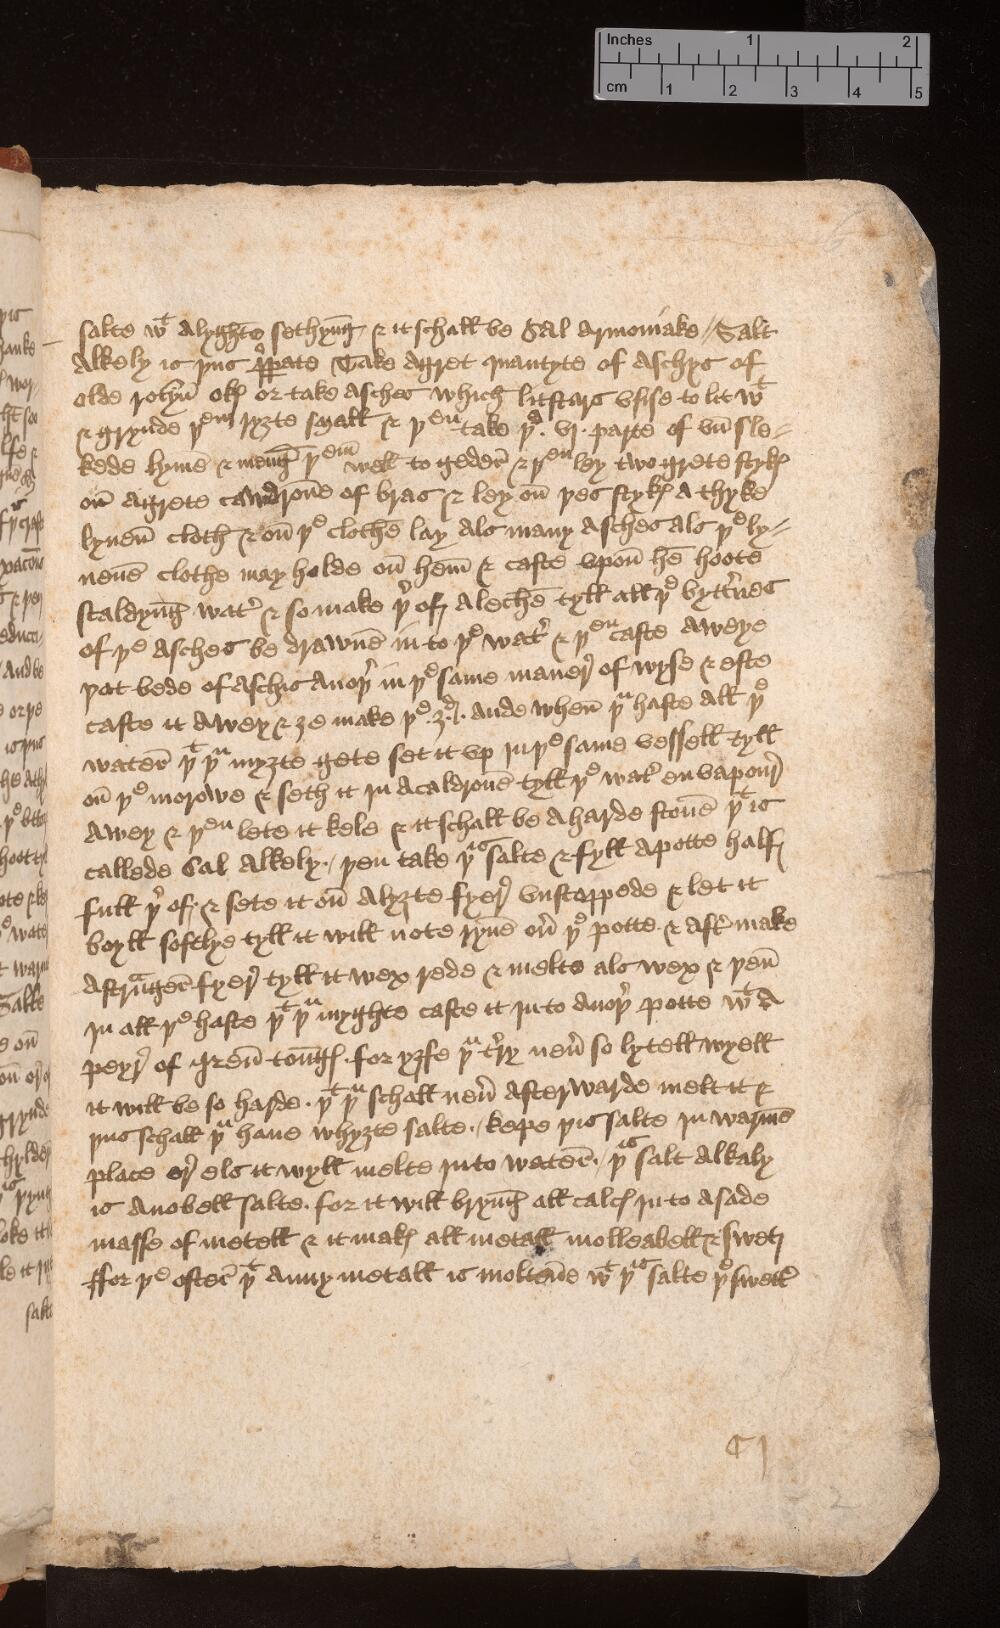 Inches 1 2
cm 1 2 3 4 5
salte wt alyghte sethyng & it schall be Sal Armoniake // Salt
Alkely is þus ꝑpate Take agret quantyte of Aschys of
olde okꝭ or take asches which litstars vsise to lit wt
& grynde þem ryȝte small & þen take þe .vj. parte of vn sle-
kede lyme & meng þem well to geder & þen ley two grete stykꝭ
on agrete cawdrone of bras & ley on þes stykꝭ a thyke
lynen cloth & on þe clothe lay als many asches als þe ly-
nene clothe may holde on hem & caste vpon he hoote
scaldyng watr & so make þr of a leche tyll all þe byttrnes
of þe asches be drawne in to þe watr & þen caste aweye
þat bede of aschis anoþr in þe same maner of wyse & efte
caste it awey & ȝe make þe .ȝ. ande when þu haste all þe
water þt þu myȝte gete set it vp in þe same vessell tyll
on þe morowe & seth it in a caldrone tyll þe watr envapour
awey & þen lete it kele & it schall be a harde stone þt is
callede Sal Alkely. / þen take þis salte & fyll apotte half
full þr of. & sete it on alyȝte fyer vnstoppede & let it
boyll softlye tyll it will note ryne on þe potte. & aftr make
astranger fyer tyll it wex rede & melte als wex & þen
in all þe haste þt þu myghte caste it into anoþr potte wt a
peyr of iren tongꝭ. for yffe þu try nevr so lytell whyell
it will be so harde. þt þu schall nevr afterwarde melt it &
þus schall þu haue whyȝte salte. / kepe þis salte in warme
place or els it wyll melte into water. / þis salt alkaly
is anobell salte. for it will bryng all calcꝭ into a sade
masse of metell & it makꝭ all metall molleabell & swetꝭ
ffor þe ofter þt anny metall is moltene wt þis salte þe swettr
C J
2